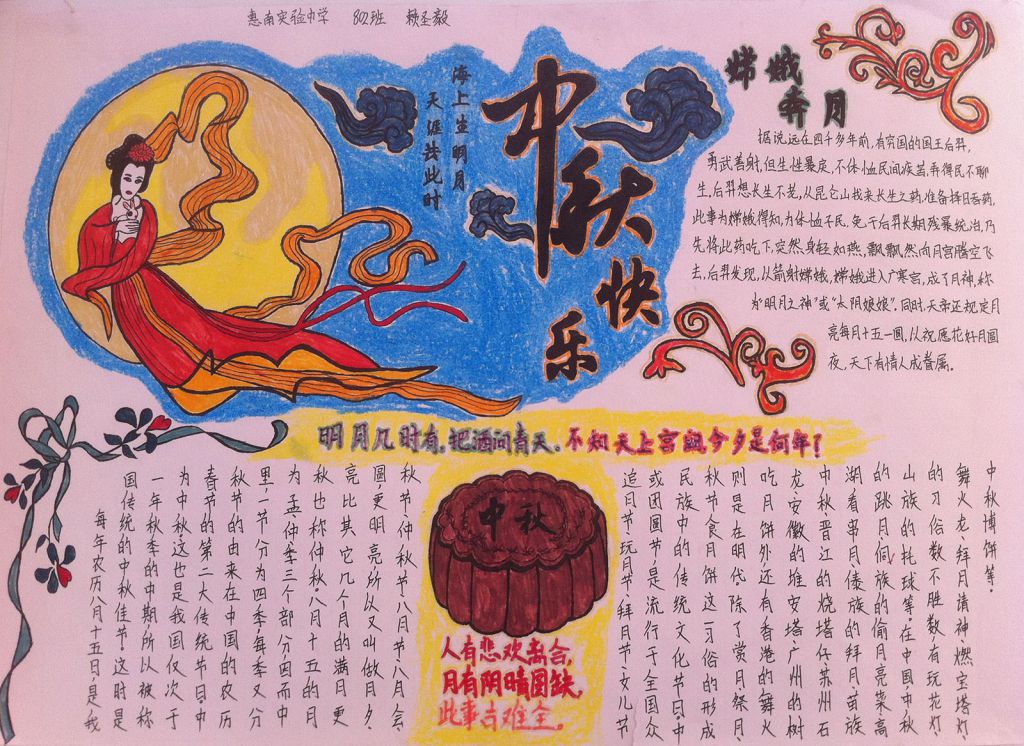 惠南实验中学 802班 赖圣毅
海上生明月
天涯共此时
中秋
快
乐
嫦娥
奔月
据说远在四千多年前,有穷国的国王后羿,
勇武善射,但生性暴戾,不体恤民间疾苦,弄得民不聊
生,后羿想长生不老,从昆仑山找来长生之药,准备择日吞药,
此事为嫦娥得知,为体恤平民,免于后羿长期残暴统治,乃
先将此药吃下,突然,身轻如燕,飘飘然向月宫腾空飞
去,后羿发现,以箭射嫦娥,嫦娥进入广寒宫,成了月神,称
为"明月之神"或"太阴娘娘".同时,天帝还规定月
亮每月十五一圆,以祝愿花好月圆
夜,天下有情人成眷属。
明月几时有,把酒问青天.不知天上宫阙,今夕是何年?
每年农历八月十五日,是我
国传统的中秋佳节。这时是
一年秋季的中期,所以被称
为中秋。这也是我国仅次于
春节的第二大传统节日。中
秋节的由来在中国的农历
里,一节分为四季,每季又分
为孟仲季三个部分,因而中
秋也称仲秋。八月十五的月
亮比其它几个月的满月更
圆,更明亮,所以又叫做月夕,
秋节,仲秋节,八月节,八月会,
追月节,玩月节,拜月节,女儿节
或团圆节,是流行于全国众
民族中的传统文化节日。中
秋节食月饼这一习俗的形成
则是在明代。除了赏月、祭月、
吃月饼外,还有香港的舞火
龙、安徽的堆安塔、广州的树
中秋、晋江的烧塔仔、苏州石
湖看串月、傣族的拜月、苗族
的跳月、侗族的偷月亮菜、高
山族的托球等。在中国中秋
的习俗数不胜数,有玩花灯、
舞火龙、拜月请神、燃宝塔灯、
中秋博饼等。
中秋
人有悲欢离合,
月有阴晴圆缺,
此事古难全。